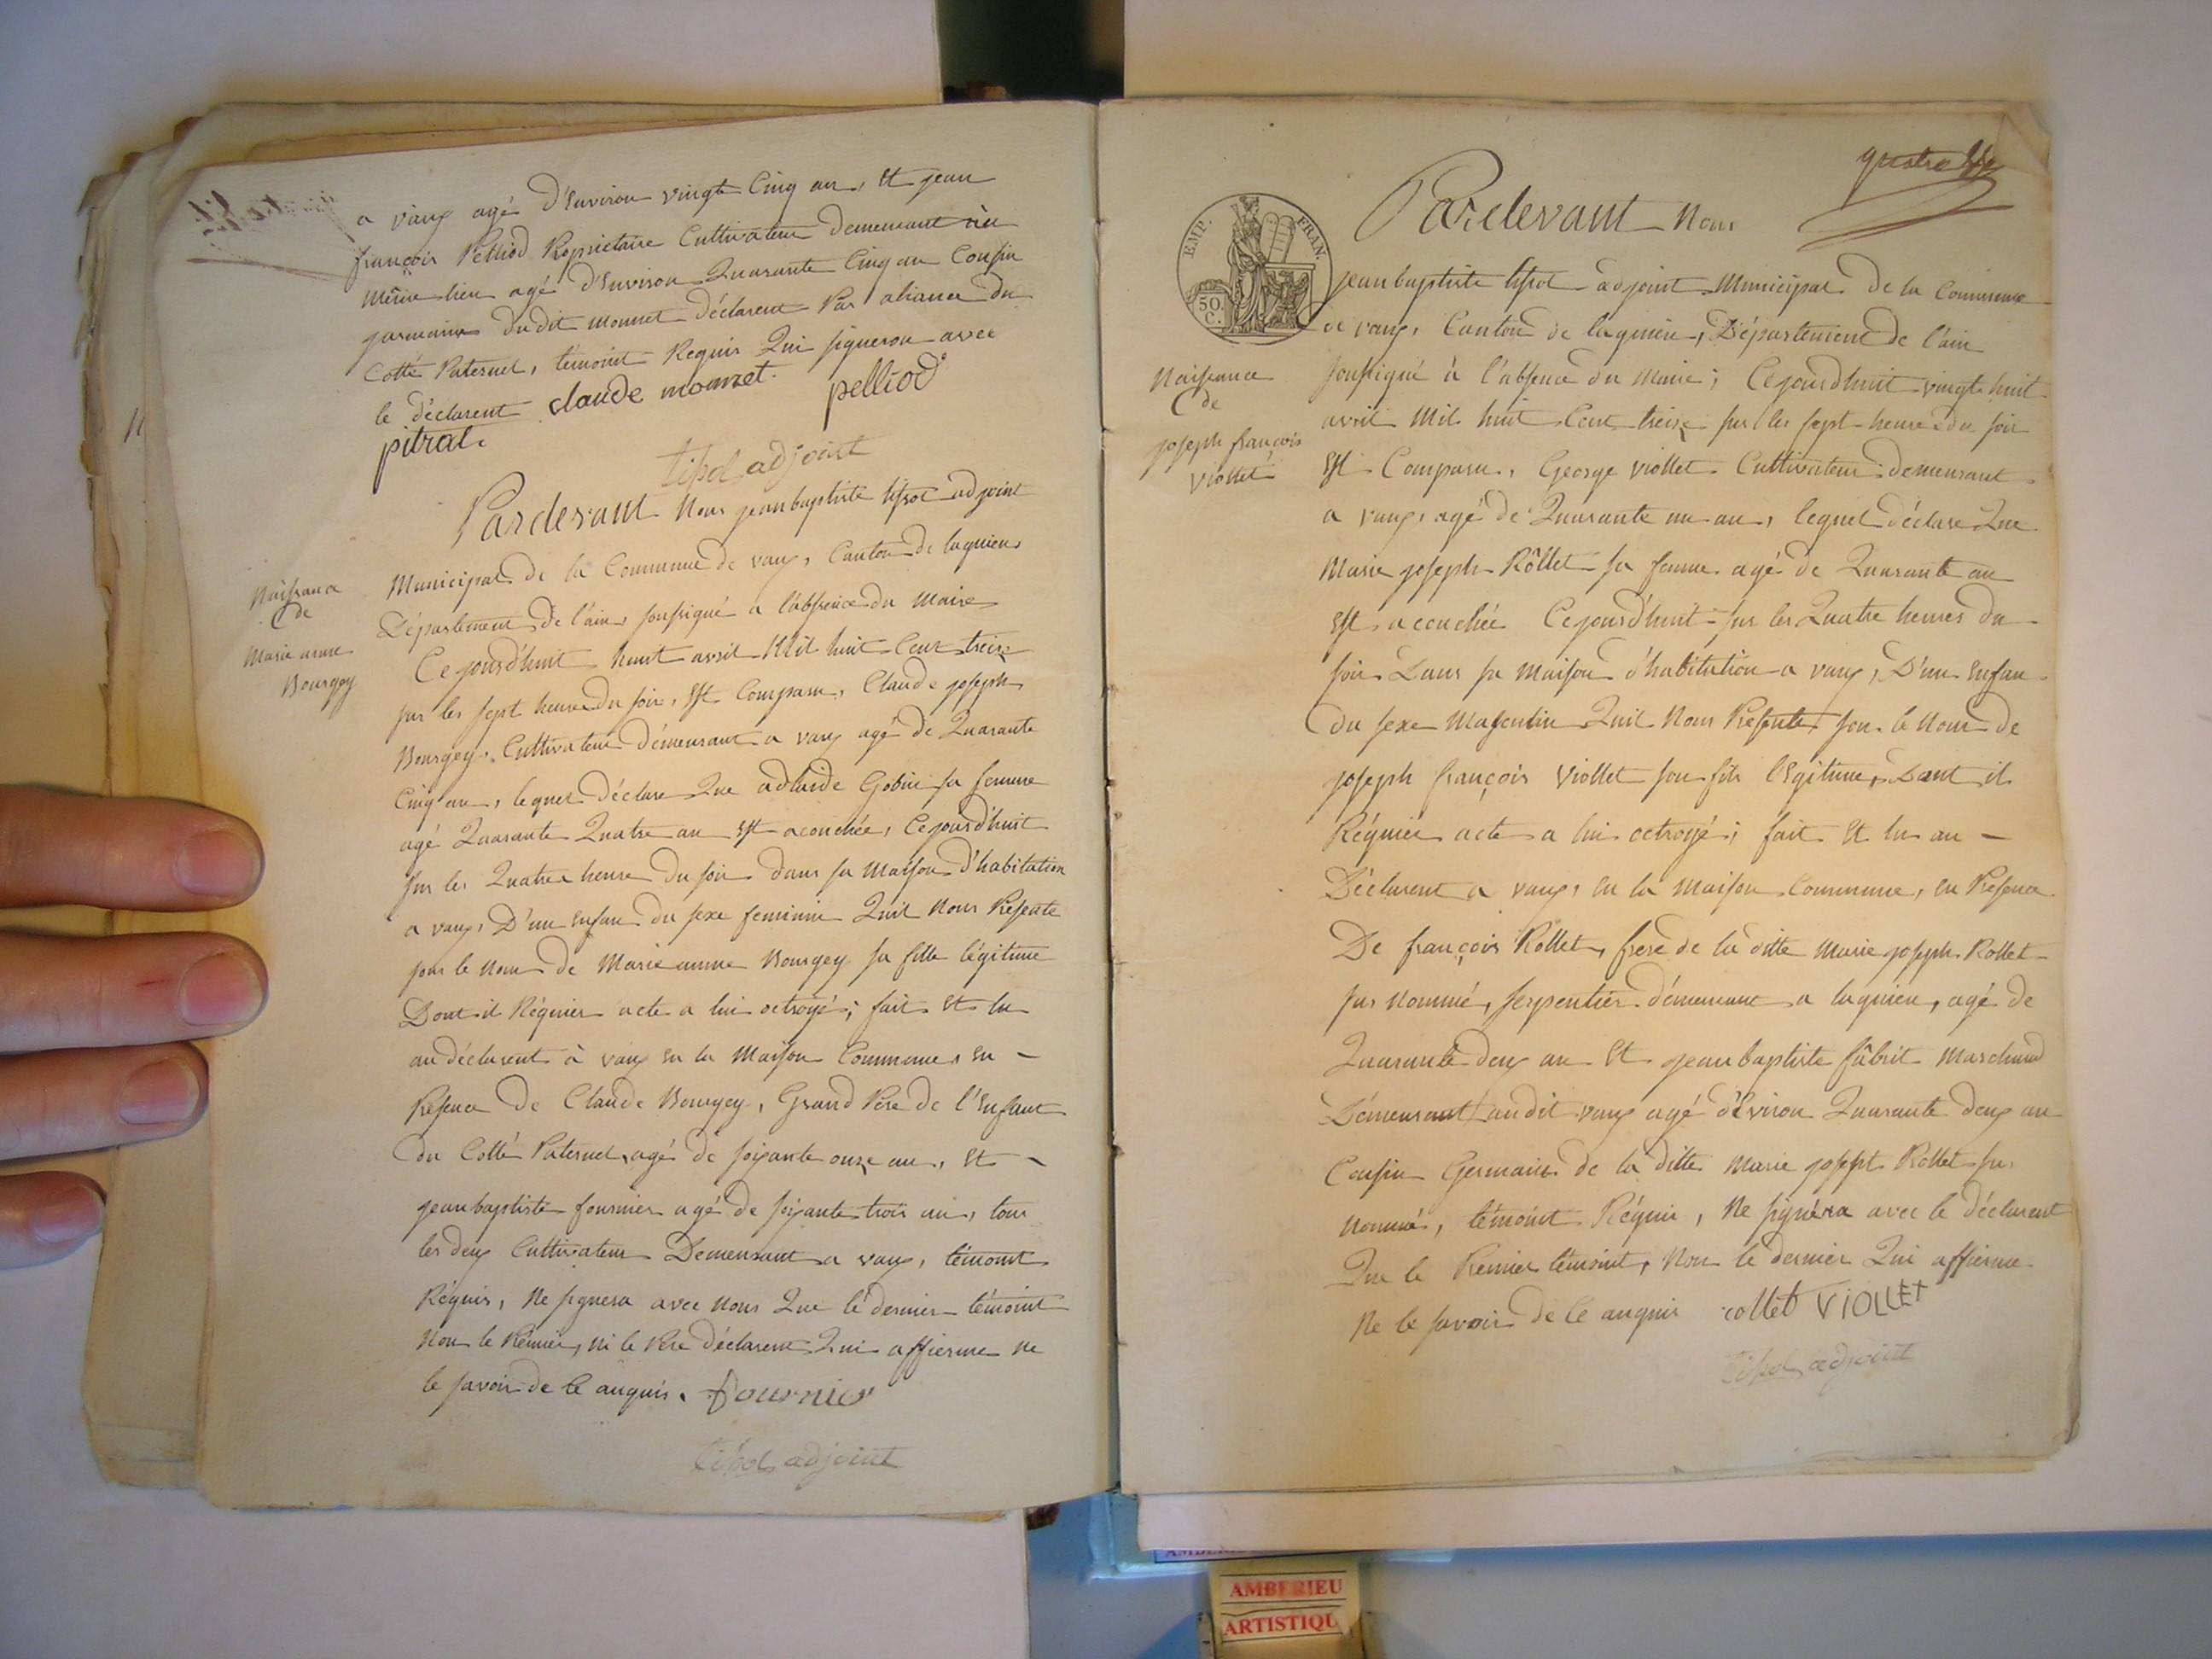 a vaux agé D'Environ vingt Cinq an, Et jean
françois Pelliod Propriétaire Cultivateur Demeurant au
même lieu agé D'Environ Quarante Cinq an Cousin
germains dudit monnet déclarent Par aliance du
Cotté Paternel, témoint Requis Qui signeron avec
le déclarent claude monnet. pelliod
pitral.
tissot adjoint
Pardevant Nous jean baptiste tissot adjoint
Municipal de la Commune de vaux, Canton de lagnieu
Département de l'ain, soussigné a l'absence du Maire
Naissance
de
Marie anne
Bourgey
Ce jourd'huit huit avril Mil huit Cent treize
sur les sept heure Du soir, Est Comparu, Claude joseph
Bourgey, Cultivateur Démeurant a vaux agé de Quarante
Cinq an, lequel déclare Que adlaide Gobin sa femme
agé Quarante Quatre an Est acouchée, Cejourd'huit
sur les Quatre heure Du soir dans sa Maison D'habitation
a vaux, D'un enfan du sexe feminin Quil Nous Présente
sous le Nom de Marie anne Bourgey sa fille légitime
Dont il Réquier acte a lui octroyé; fait Et lu
au déclarent à vaux En la Maison Commune, En –
Présence De Claude Bourgey, Grand Père de l'Enfant
du Cotté Paternel, agé de soixante onze an, Et –
jean baptiste fournier agé de soixante trois an, tous
les deux Cultivateur Demeurant a vaux, témoint
Réquis, Ne signera avec Nous Que le dernier témoint
Non le Prémier, ni le Père déclarent Qui affierme ne
le savoir de Ce anquis. fournier
tissot adjoint
quatre
EMP. FRAN.
50 C.
Pardevant Nous
jean baptiste tissot adjoint Municipal De la Commune
de vaux, Canton de lagnieu, Département de l'ain
Naissance
de
joseph françois
Viollet
soussigné à l'absence du Maire; Cejourd'huit vingt huit
avril Mil huit Cent treize sur les sept heure du soir
Est Comparu, George viollet Cultivateur demeurant
a vaux, agé de Quarante un an, lequel déclare Que
Marie joseph Rôllet sa femme agé de Quarante an
Est acouchée Cejourd'huit sur les Quatre heures du
soir Dans sa Maison d'habitation a vaux, D'un Enfan
Du sexe Masculin Quil Nous Présente sous le Nom de
joseph françois Viollet son fils légitime, Dont il
Réquier acte a lui octroyé; fait Et lu au –
Déclarent a vaux, En la Maison Commune, En Présence
De françois Rollet, frère de la ditte Marie joseph Rollet
sus Nommé, serpentier démeurant a lagnieu, agé de
Quarante deux an Et jean baptiste fâbrit Marchand
Démeurant audit vaux agé d'Eviron Quarante deux an
Cousin Germain de la ditte Marie joseph Rollet sus
nommé, témoint Réquis, Ne signéra avec le déclarent
Que le Prémier témoint, Non le dernier Qui affierme
Ne le savoir de Ce anquis rollet VIOLLET
tissot adjoint
AMBERIEU
ARTISTIQU